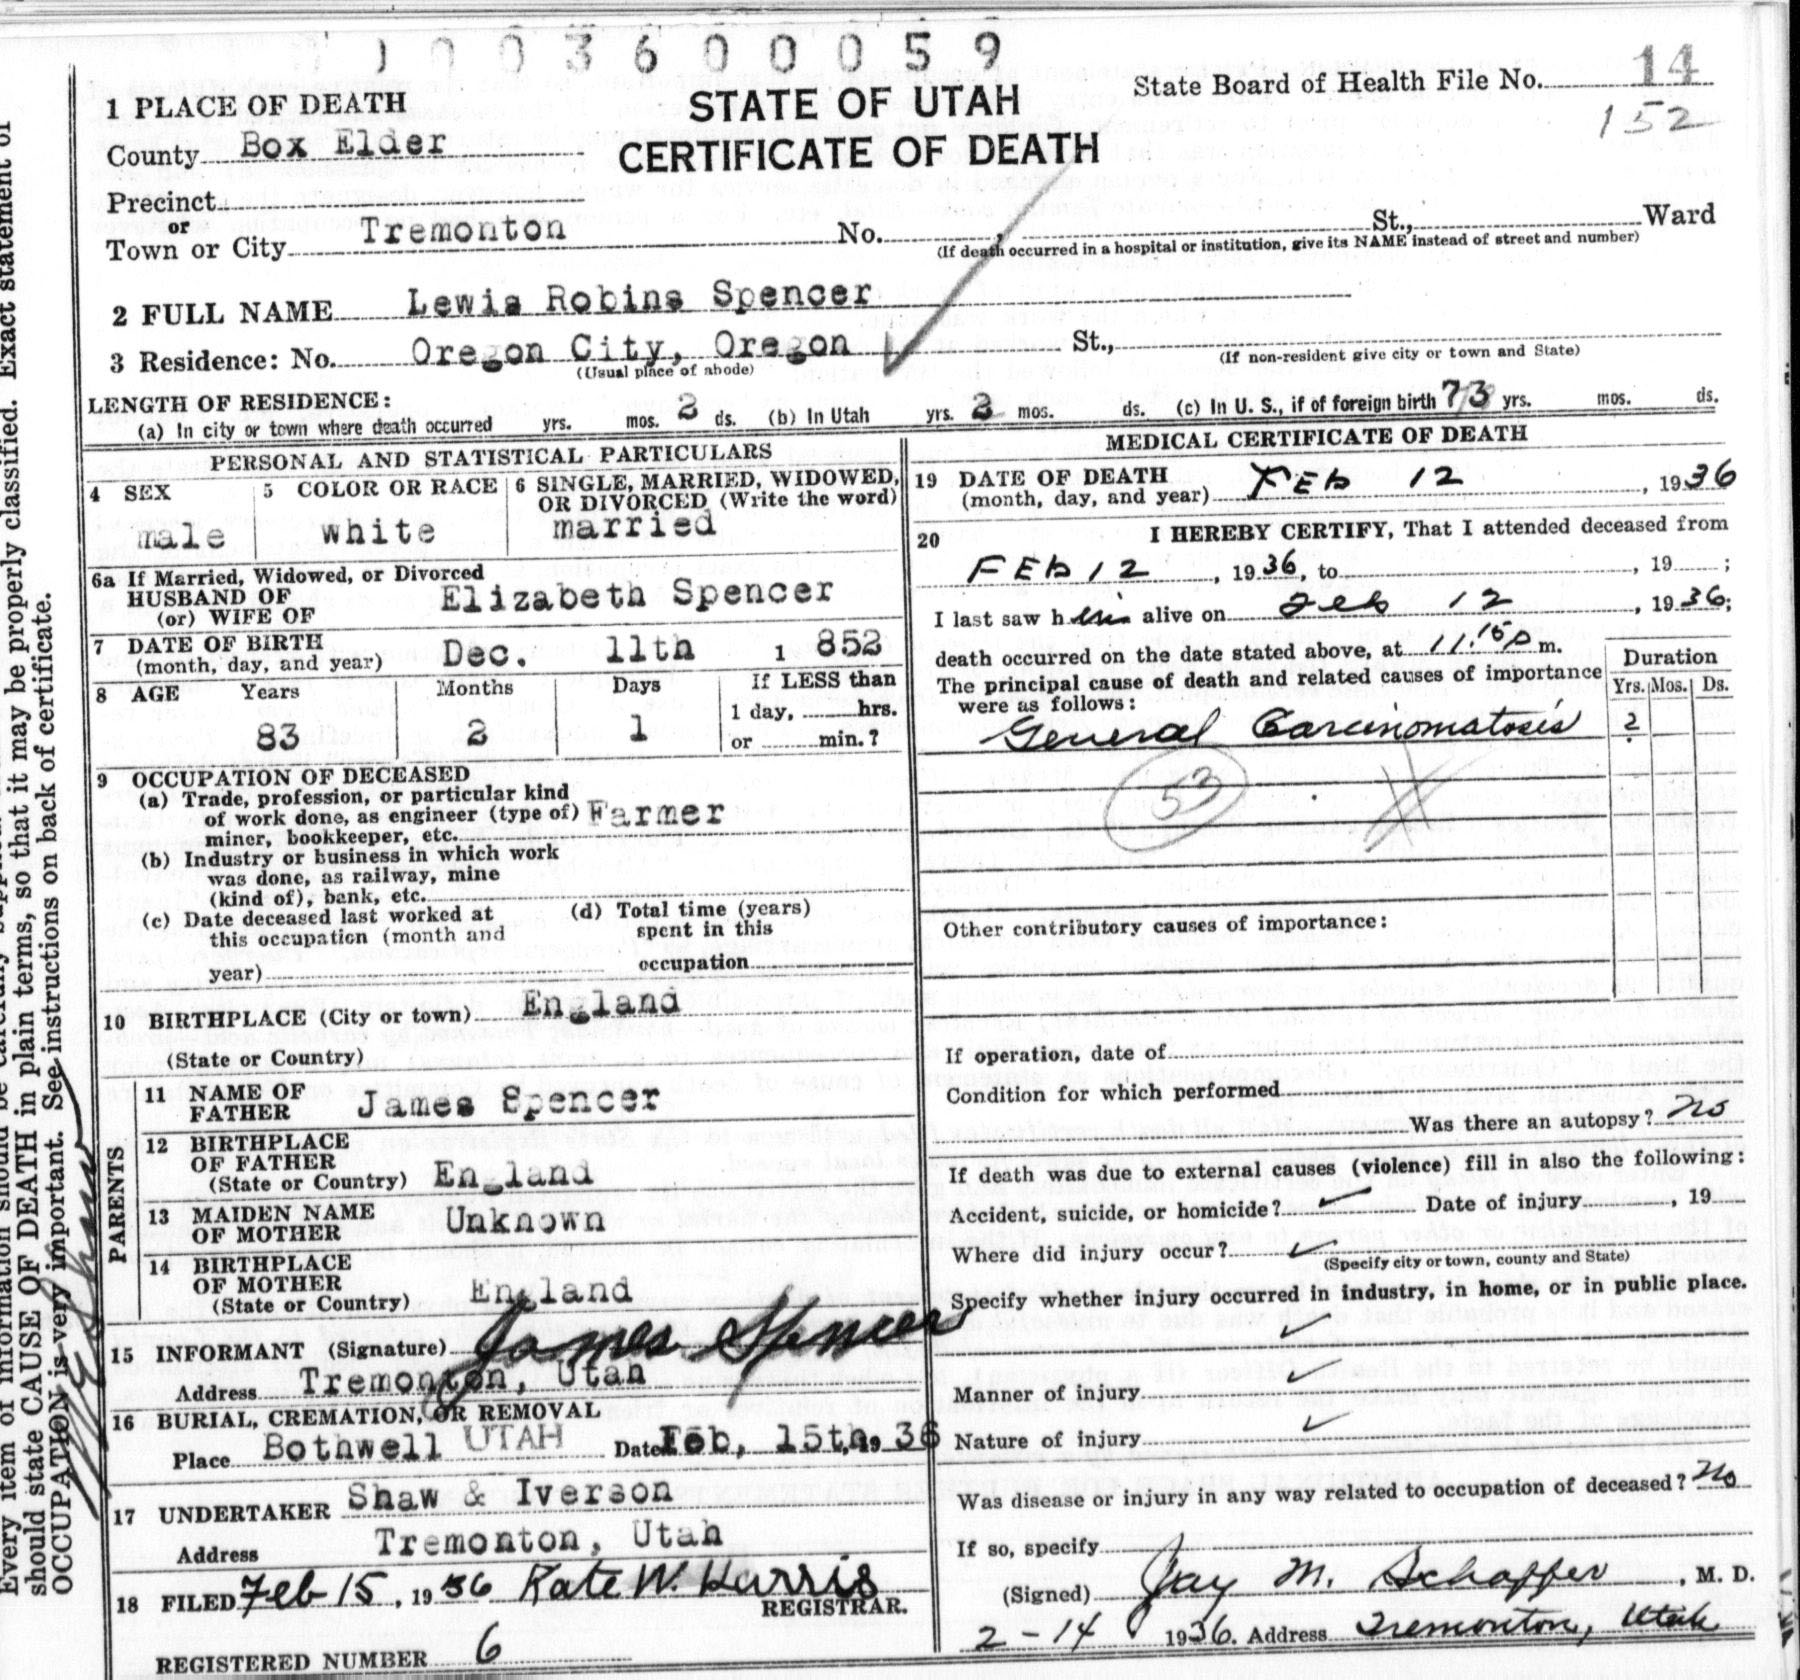 1003600059
State Board of Health File No. 14
152
STATE OF UTAH
CERTIFICATE OF DEATH
1 PLACE OF DEATH
County Box Elder
Precinct
or
Town or City Tremonton No. St., Ward
(If death occurred in a hospital or institution, give its NAME instead of street and number)
2 FULL NAME Lewis Robins Spencer
3 Residence: No. Oregon City, Oregon St.,
(Usual place of abode) (If non-resident give city or town and State)
LENGTH OF RESIDENCE:
(a) In city or town where death occurred yrs. mos. 2 ds. (b) In Utah yrs. 2 mos. ds. (c) In U. S., if of foreign birth 73 yrs. mos. ds.
PERSONAL AND STATISTICAL PARTICULARS
4 SEX
male
5 COLOR OR RACE
white
6 SINGLE, MARRIED, WIDOWED, OR DIVORCED (Write the word)
married
6a If Married, Widowed, or Divorced
HUSBAND OF
(or) WIFE OF
Elizabeth Spencer
7 DATE OF BIRTH
(month, day, and year) Dec. 11th 1852
8 AGE Years Months Days If LESS than
1 day, hrs.
83 2 1 or min.?
9 OCCUPATION OF DECEASED
(a) Trade, profession, or particular kind
of work done, as engineer (type of) Farmer
miner, bookkeeper, etc.
(b) Industry or business in which work
was done, as railway, mine
(kind of), bank, etc.
(c) Date deceased last worked at
this occupation (month and
year)
(d) Total time (years)
spent in this
occupation
10 BIRTHPLACE (City or town) England
(State or Country)
PARENTS
11 NAME OF
FATHER James Spencer
12 BIRTHPLACE
OF FATHER
(State or Country) England
13 MAIDEN NAME
OF MOTHER Unknown
14 BIRTHPLACE
OF MOTHER
(State or Country) England
15 INFORMANT (Signature) James Spencer
Address Tremonton, Utah
16 BURIAL, CREMATION, OR REMOVAL
Place Bothwell UTAH Date Feb, 15th, 1936
17 UNDERTAKER Shaw & Iverson
Address Tremonton, Utah
18 FILED Feb 15, 1936 Kate W. Harris
REGISTRAR.
REGISTERED NUMBER 6
MEDICAL CERTIFICATE OF DEATH
19 DATE OF DEATH
(month, day, and year) FEb 12, 1936
20 I HEREBY CERTIFY, That I attended deceased from
FEb 12, 1936, to , 19 ;
I last saw him alive on Feb 12, 1936;
death occurred on the date stated above, at 11:15 p m.
The principal cause of death and related causes of importance
were as follows:
Duration
Yrs. Mos. Ds.
General Carcinomatosis 2
53
Other contributory causes of importance:
If operation, date of
Condition for which performed
Was there an autopsy? No
If death was due to external causes (violence) fill in also the following:
Accident, suicide, or homicide? Date of injury , 19
Where did injury occur?
(Specify city or town, county and State)
Specify whether injury occurred in industry, in home, or in public place.
Manner of injury
Nature of injury
Was disease or injury in any way related to occupation of deceased? No
If so, specify
(Signed) Jay M. Schaffer, M. D.
2-14 1936. Address Tremonton, Utah
should state CAUSE OF DEATH in plain terms, so that it may be properly classified. Exact statement of
OCCUPATION is very important. See instructions on back of certificate.